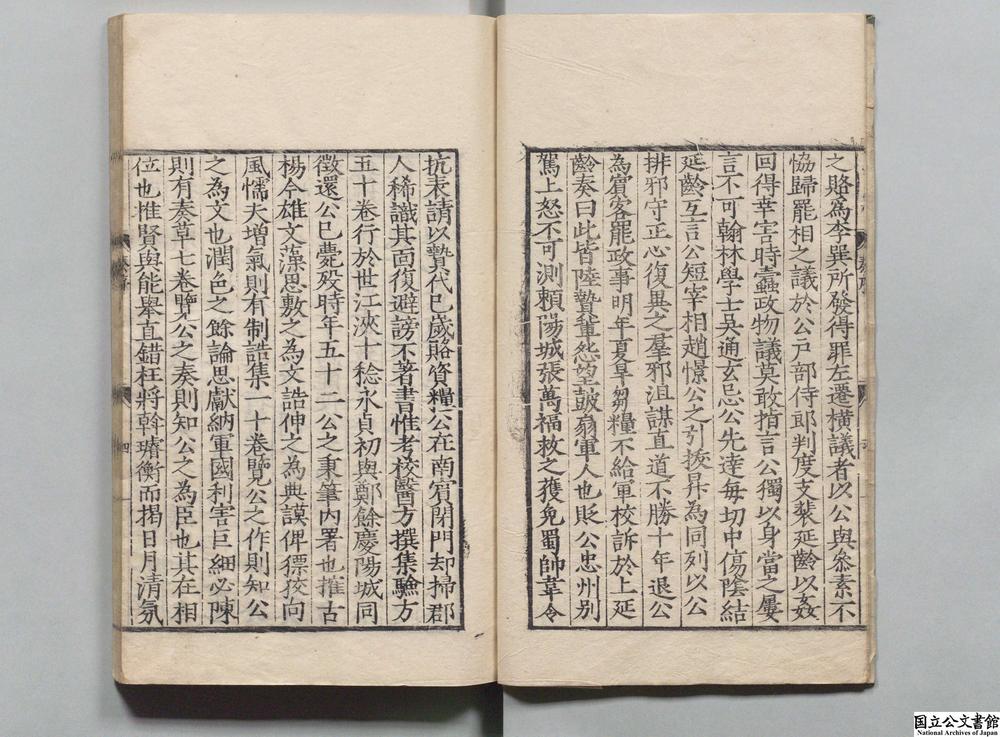 之賂為李巽所發得罪左遷橫議者以公與參素不
協歸罷相之議於公戸部侍郎判度支裴延齡以姦
回得幸害時蠹政物議莫敢指言公獨以身當之屢
言不可翰林學士吳通玄忌公先達每切中傷陰結
延齡互言公短宰相趙憬公之引拔昇為同列以公
排邪守正心復異之羣邪沮謀直道不勝十年退公
為賓客罷政事明年夏旱芻糧不給軍校訴於上延
齡奏曰此皆陸贄輩怨望鼓扇軍人也貶公忠州別
駕上怒不可測賴陽城張萬福救之獲免蜀帥韋令
抗表請以贄代已歲賂資糧公在南賓閉門却掃郡
人稀識其面復避謗不著書惟考校醫方撰集驗方
五十卷行於世江浹十稔永貞初與鄭餘慶陽城同
徵還公已薨歿時年五十二公之秉筆內署也搉古
楊今雄文藻思敷之為文誥伸之為典謨俾獷狡向
風懦夫增氣則有制誥集一十卷覽公之作則知公
之為文也潤色之餘論思獻納軍國利害巨細必陳
則有奏草七卷覽公之奏則知公之為臣也其在相
位也推賢與能舉直錯枉將斡璿衡而揭日月清氛
四
国立公文書館
National Archives of Japan